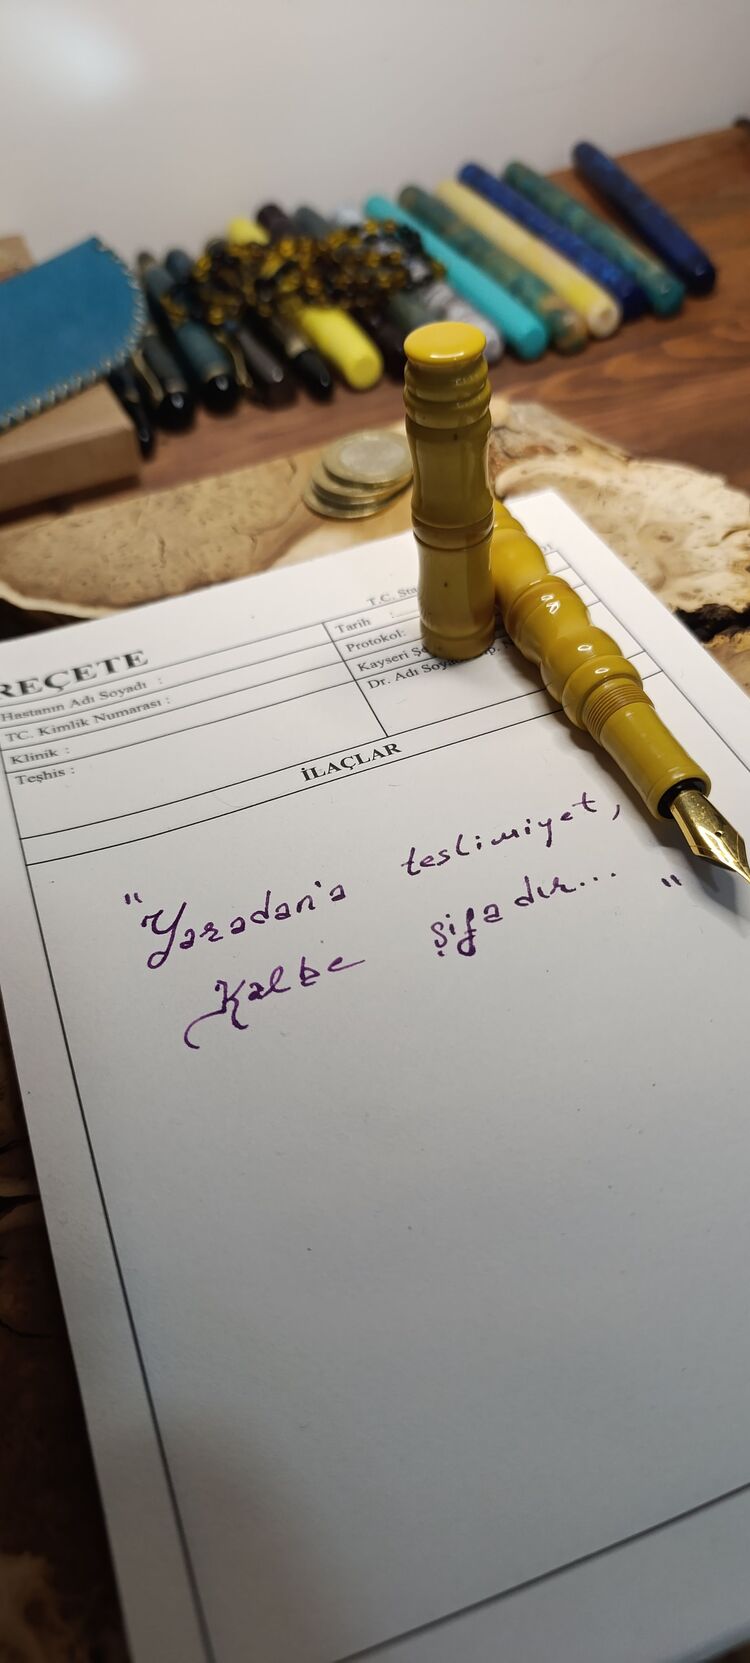 T.C. Sta
REÇETE
Hastanın Adı Soyadı :
TC. Kimlik Numarası :
Klinik :
Teşhis :
Tarih :
Protokol:
Kayseri Şe
Dr. Adı Soya
İLAÇLAR
"Yaradan'a teslimiyet,
Kalbe şifadır... "